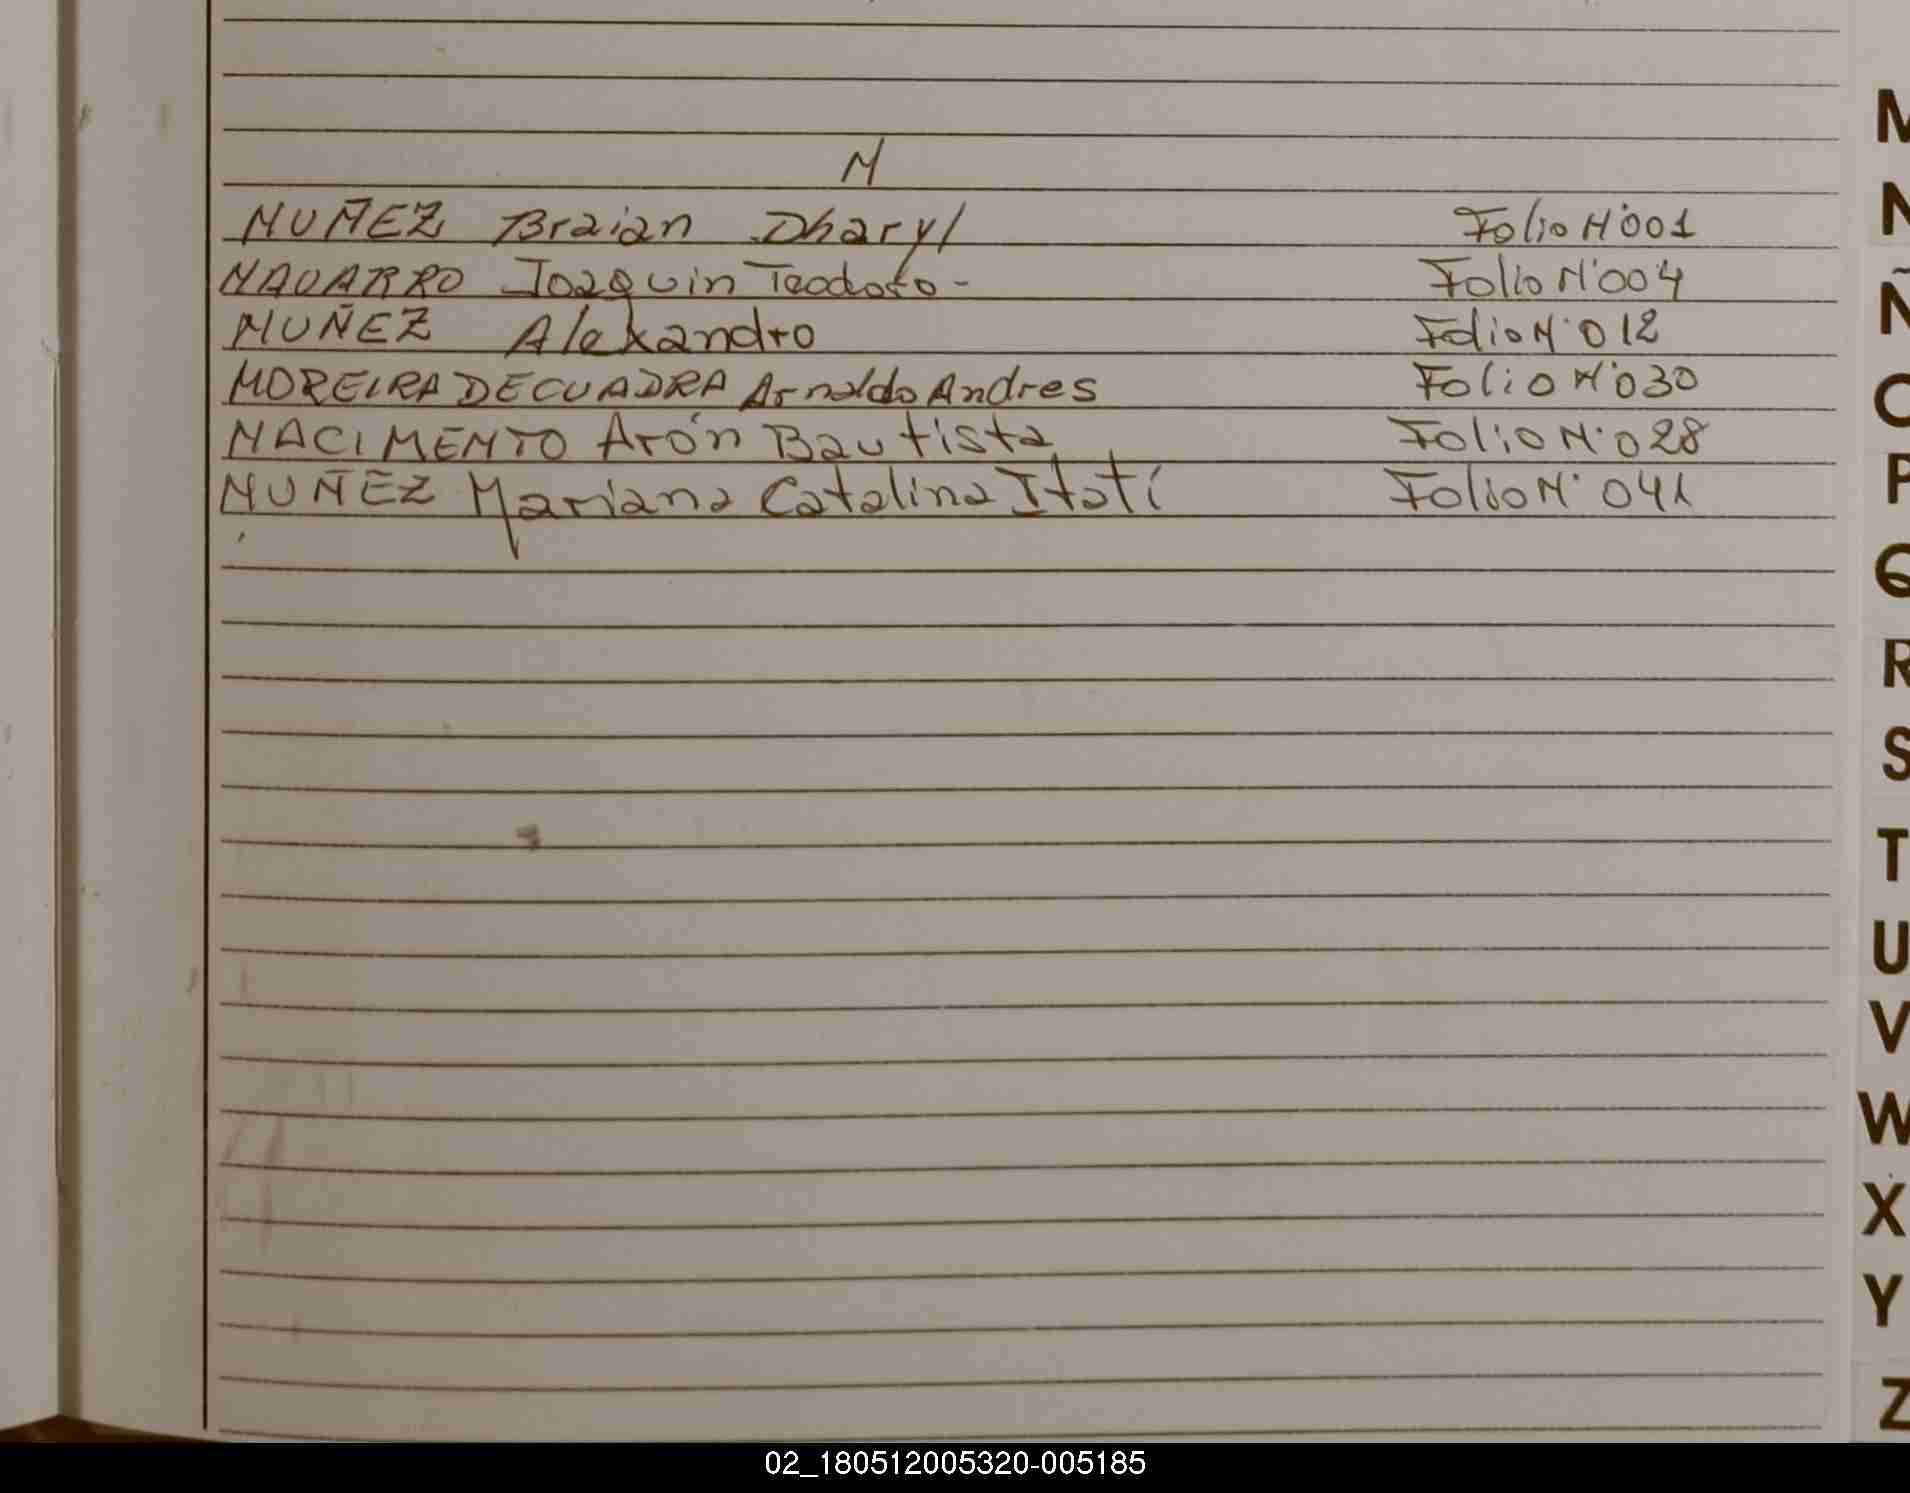 N
NUÑEZ Braian Dharyl Folio N°001
NAVARRO Joaquin Teodoro- Folio N°004
NUÑEZ Alexandro Folio N°012
MOREIRA DE CUADRA Arnaldo Andres Folio N°030
NACIMENTO Arón Bautista Folio N°028
NUÑEZ Mariana Catalina Itatí Folio N° 041
M
N
Ñ
O
P
Q
R
S
T
U
V
W
X
Y
Z
02_180512005320-005185